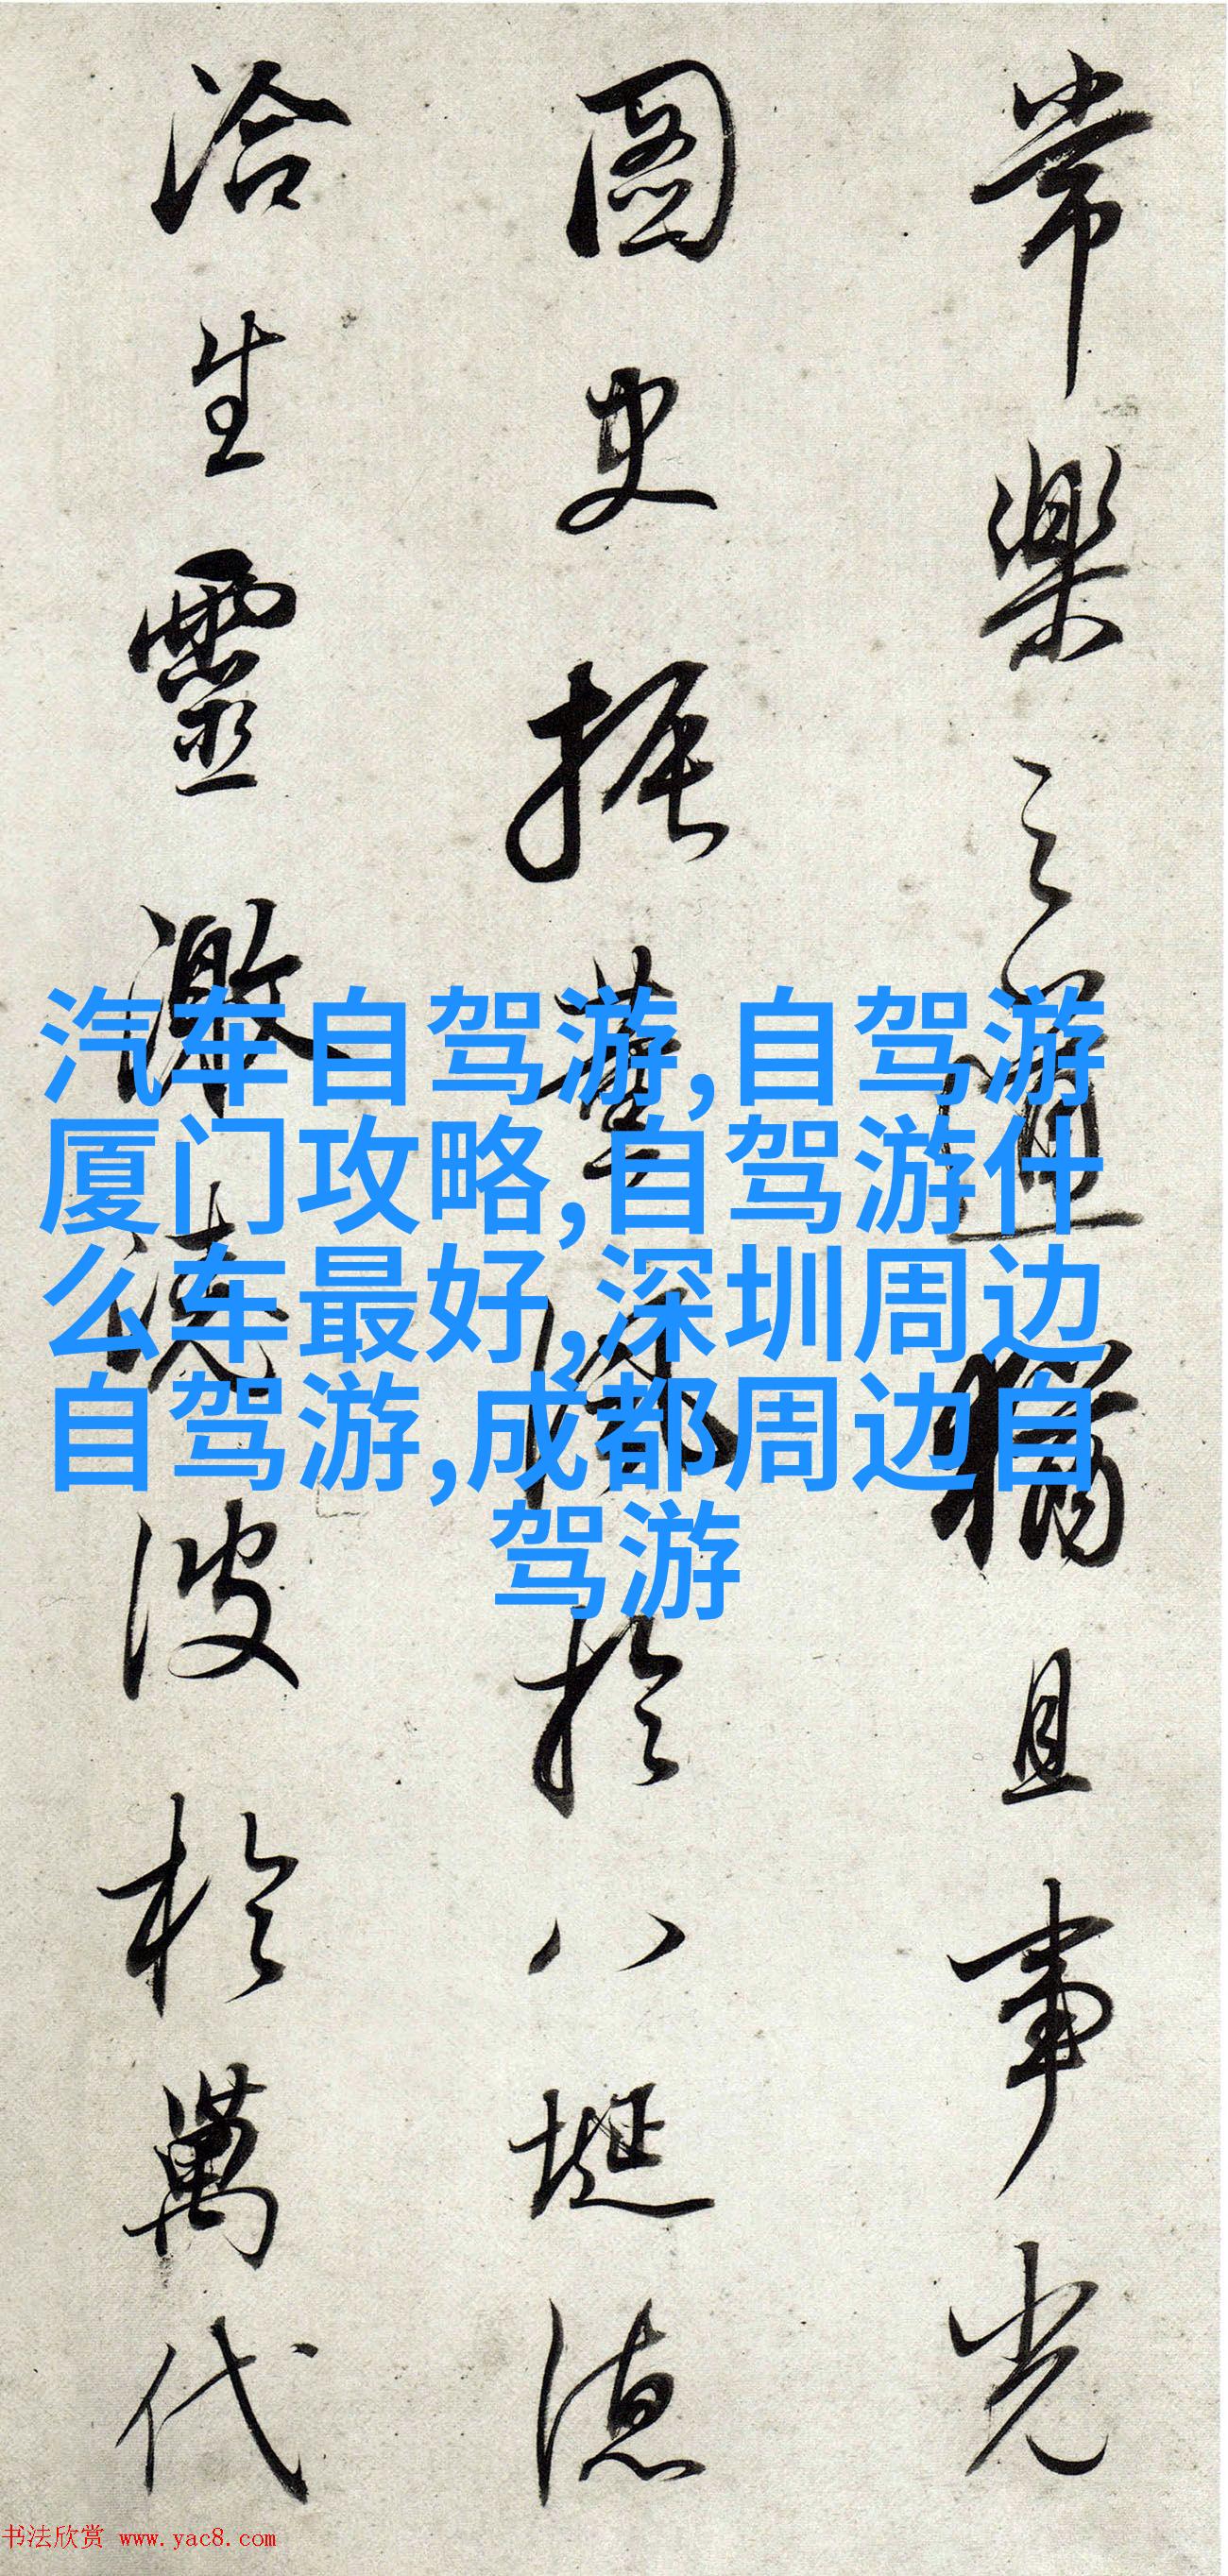 常樂之道猶且事光
圖史振薰風於八埏德
洽生靈激澆波於萬代
汽车自驾游,自驾游
厦门攻略,自驾游什
么车最好,深圳周边
自驾游,成都周边自
驾游
书法欣赏 www.yac8.com